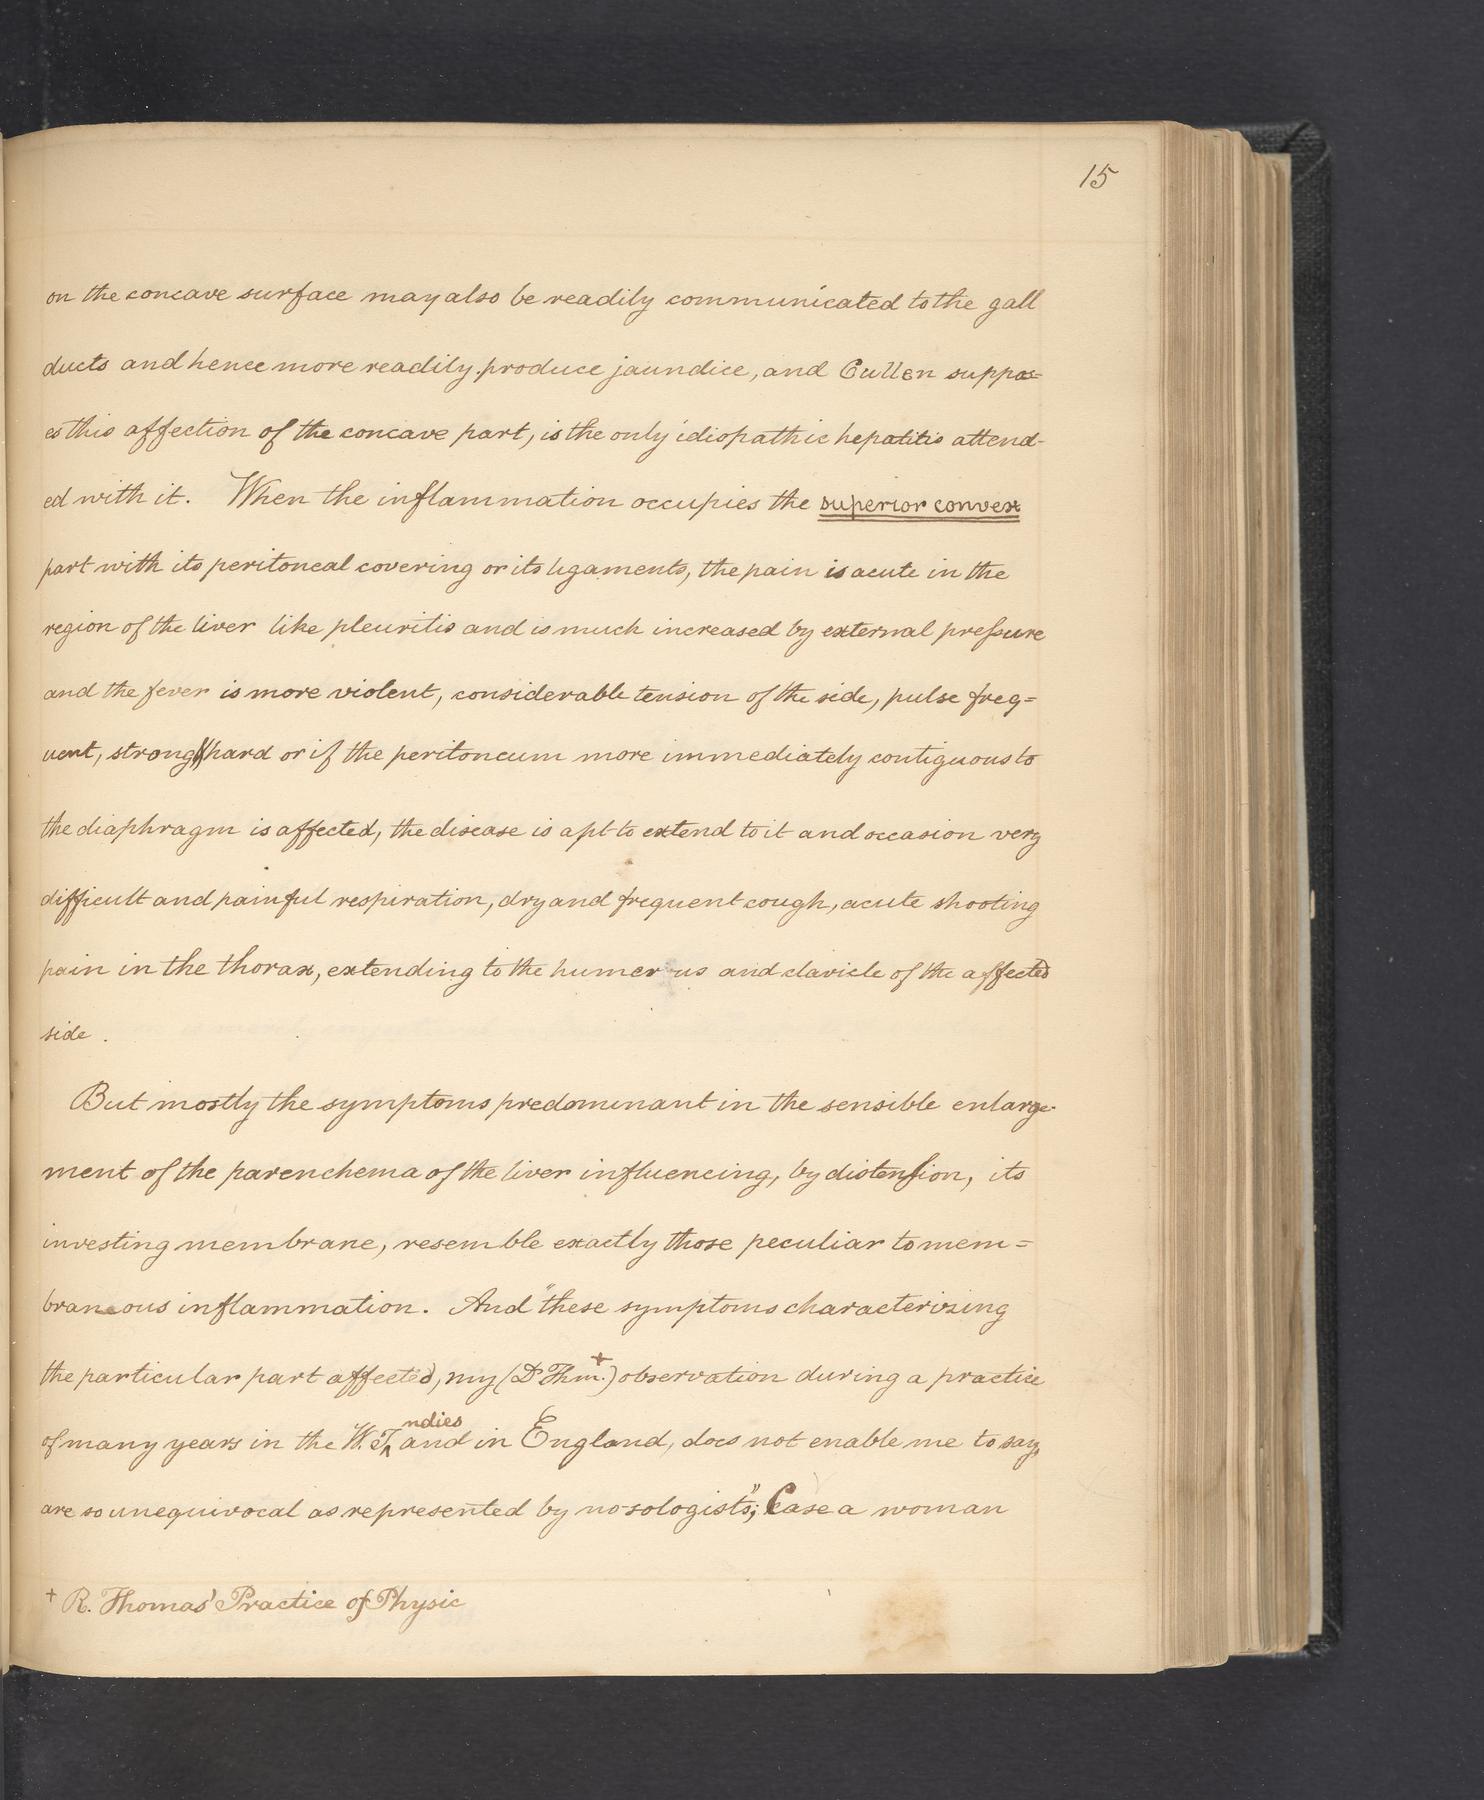 15
on the concave surface may also be readily communicated to the gall
ducts and hence more readily produce jaundice, and Cullen suppos=
es this affection of the concave part, is the only idiopathic hepatitis attend-
ed with it. When the inflammation occupies the superior convex
part with its peritoneal covering or its ligaments, the pain is acute in the
region of the liver like pleuritis and is much increased by external pressure
and the fever is more violent, considerable tension of the side, pulse freq=
uent, strong hard or if the peritoneum more immediately contiguous to
the diaphragm is affected, the disease is apt to extend to it and occasion very
difficult and painful respiration, dry and frequent cough, acute shooting
pain in the thorax, extending to the humerus and clavicle of the affected
side.
But mostly the symptoms predominant in the sensible enlarge-
ment of the parenchema of the liver influencing, by distension, its
investing membrane, resemble exactly those peculiar to mem=
braneous inflammation. And "these symptoms characterizing
the particular part affected, my (Dr Thm.+) observation during a practice
of many years in the W. Indies and in England, does not enable me to say,
are so unequivocal as represented by nosologists"; Case a woman
+ R. Thomas' Practice of Physic